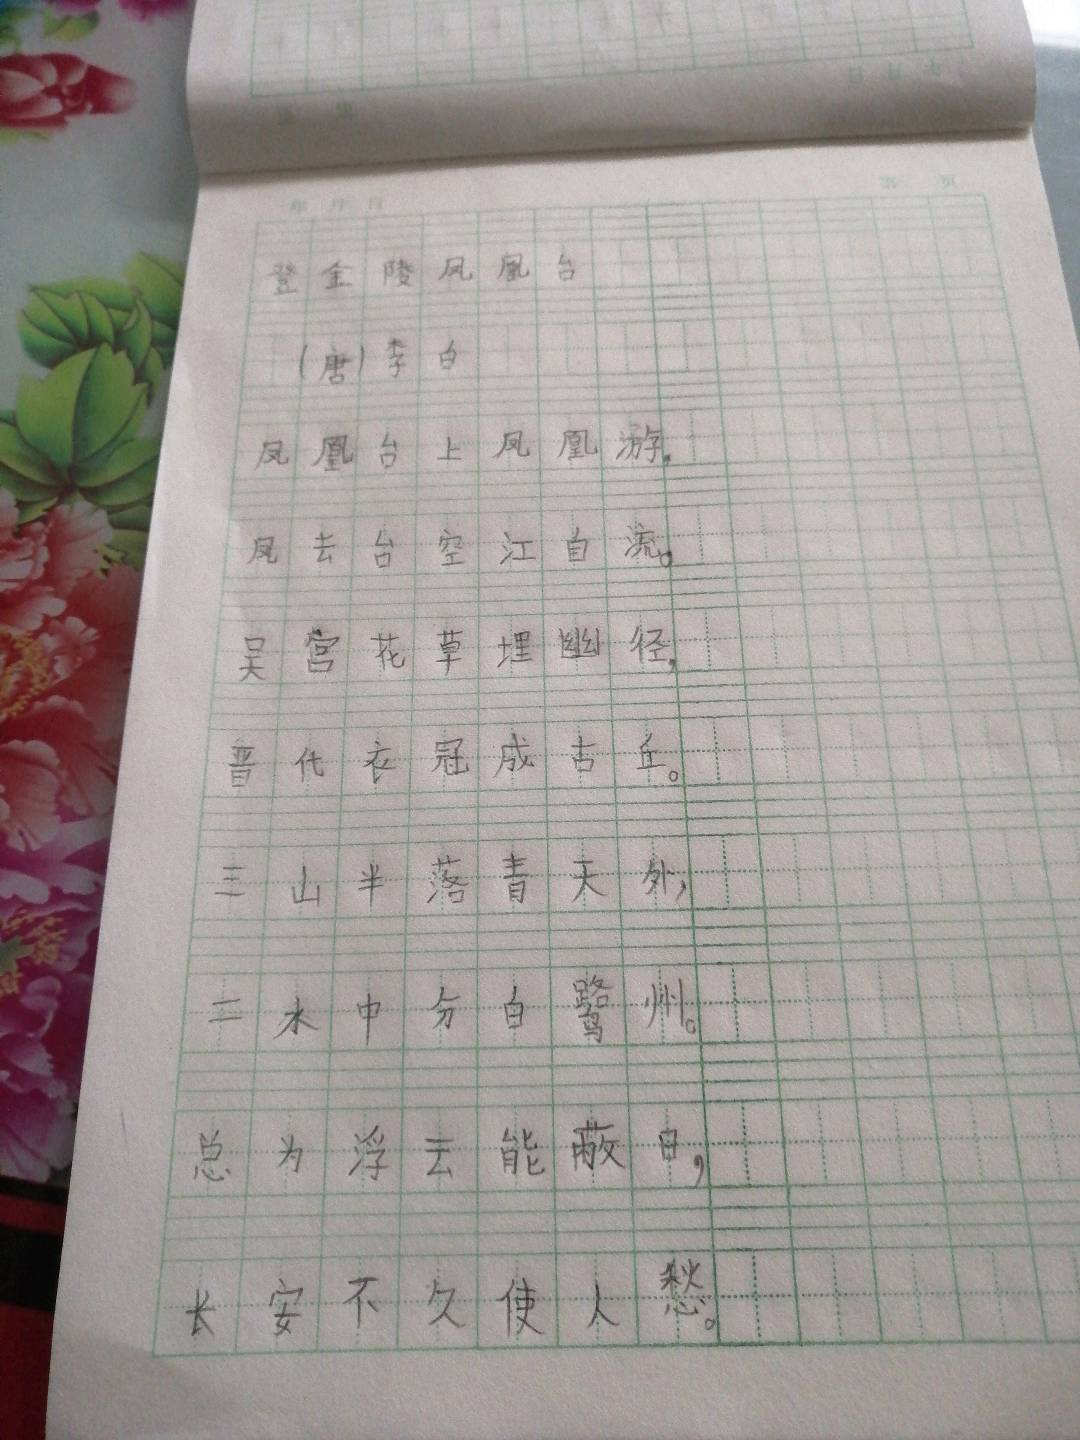 年 月 日
第 页
登金陵凤凰台
(唐)李白
凤凰台上凤凰游,
凤去台空江自流。
吴宫花草埋幽径,
晋代衣冠成古丘。
三山半落青天外,
二水中分白鹭州。
总为浮云能蔽日,
长安不久使人愁。